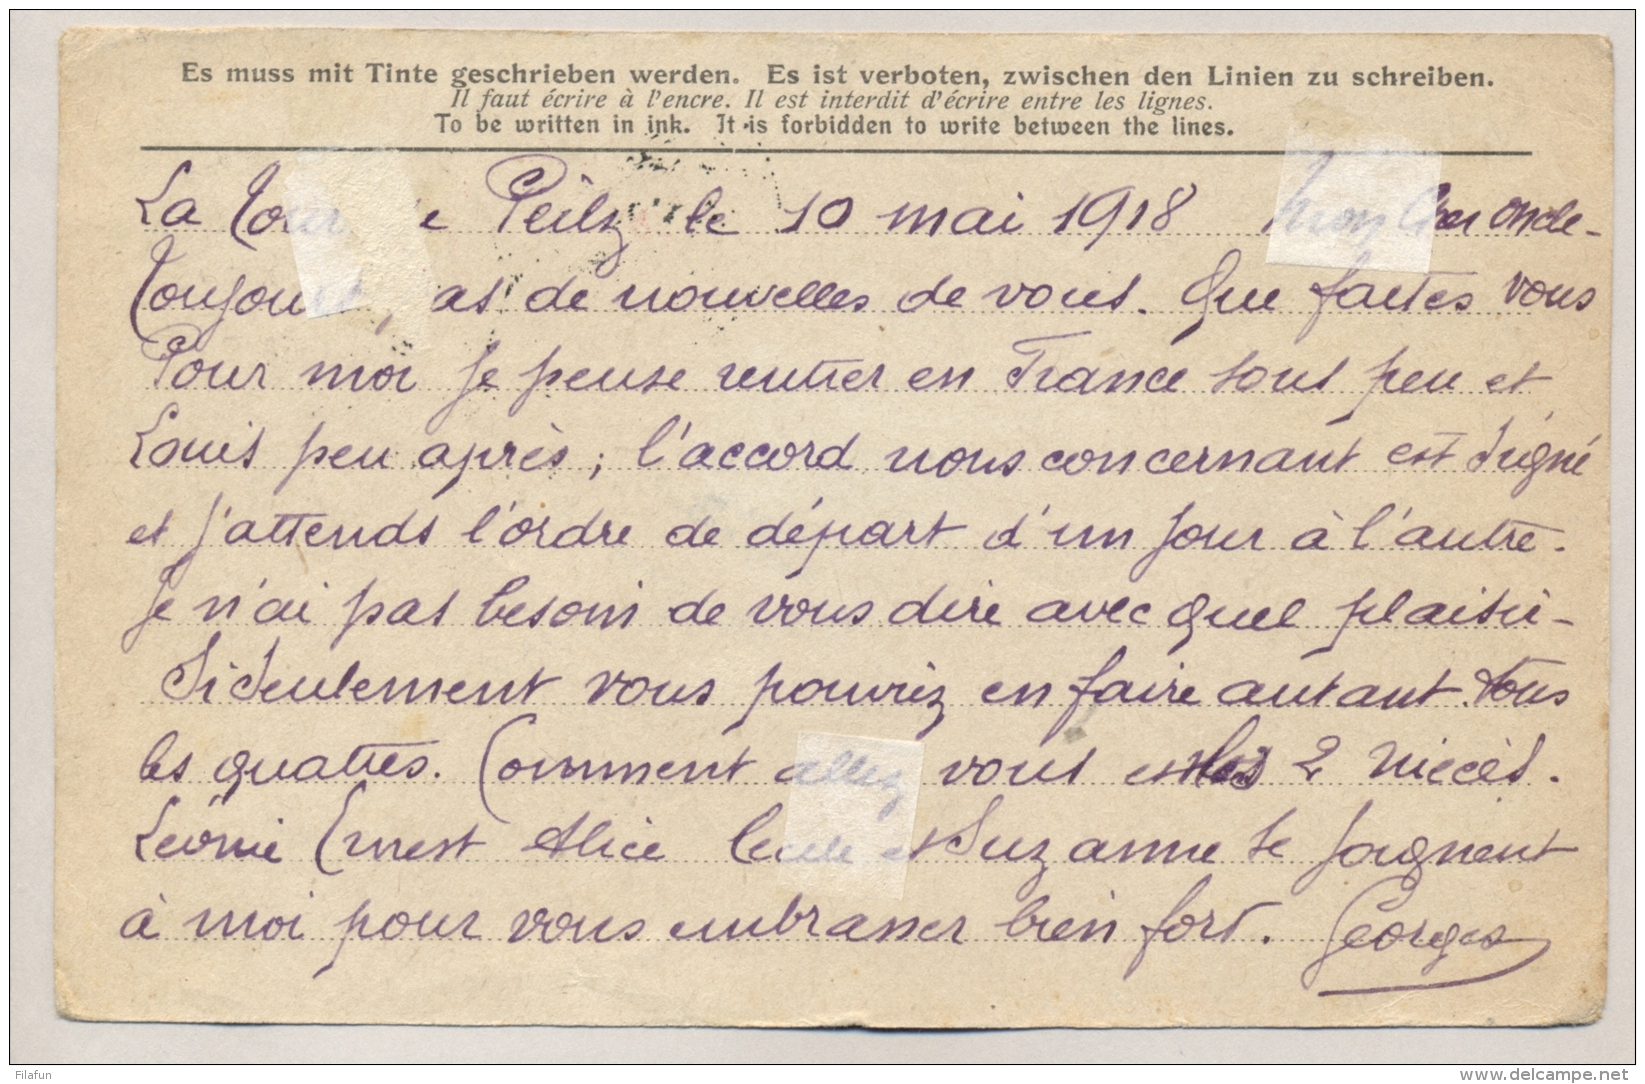 Es muss mit Tinte geschrieben werden. Es ist verboten, zwischen den Linien zu schreiben.
Il faut écrire à l'encre. Il est interdit d'écrire entre les lignes.
To be written in ink. It is forbidden to write between the lines.
La Tour de Peilz le 10 mai 1918 Mon cher oncle -
Toujours pas de nouvelles de vous. Que faites vous
Pour moi je pense rentrer en France sous peu et
Louis peu après; l'accord nous concernant est signé
et j'attends l'ordre de départ d'un jour à l'autre.
Je n'ai pas besoin de vous dire avec quel plaisir -
Si seulement vous pouviez en faire autant tous
les quatres. Comment allez vous et les 2 nièces.
Léonie Ernest Alice et Suzanne se joignent
à moi pour vous embrasser bien fort. Georges
Filafun
www.delcampe.net